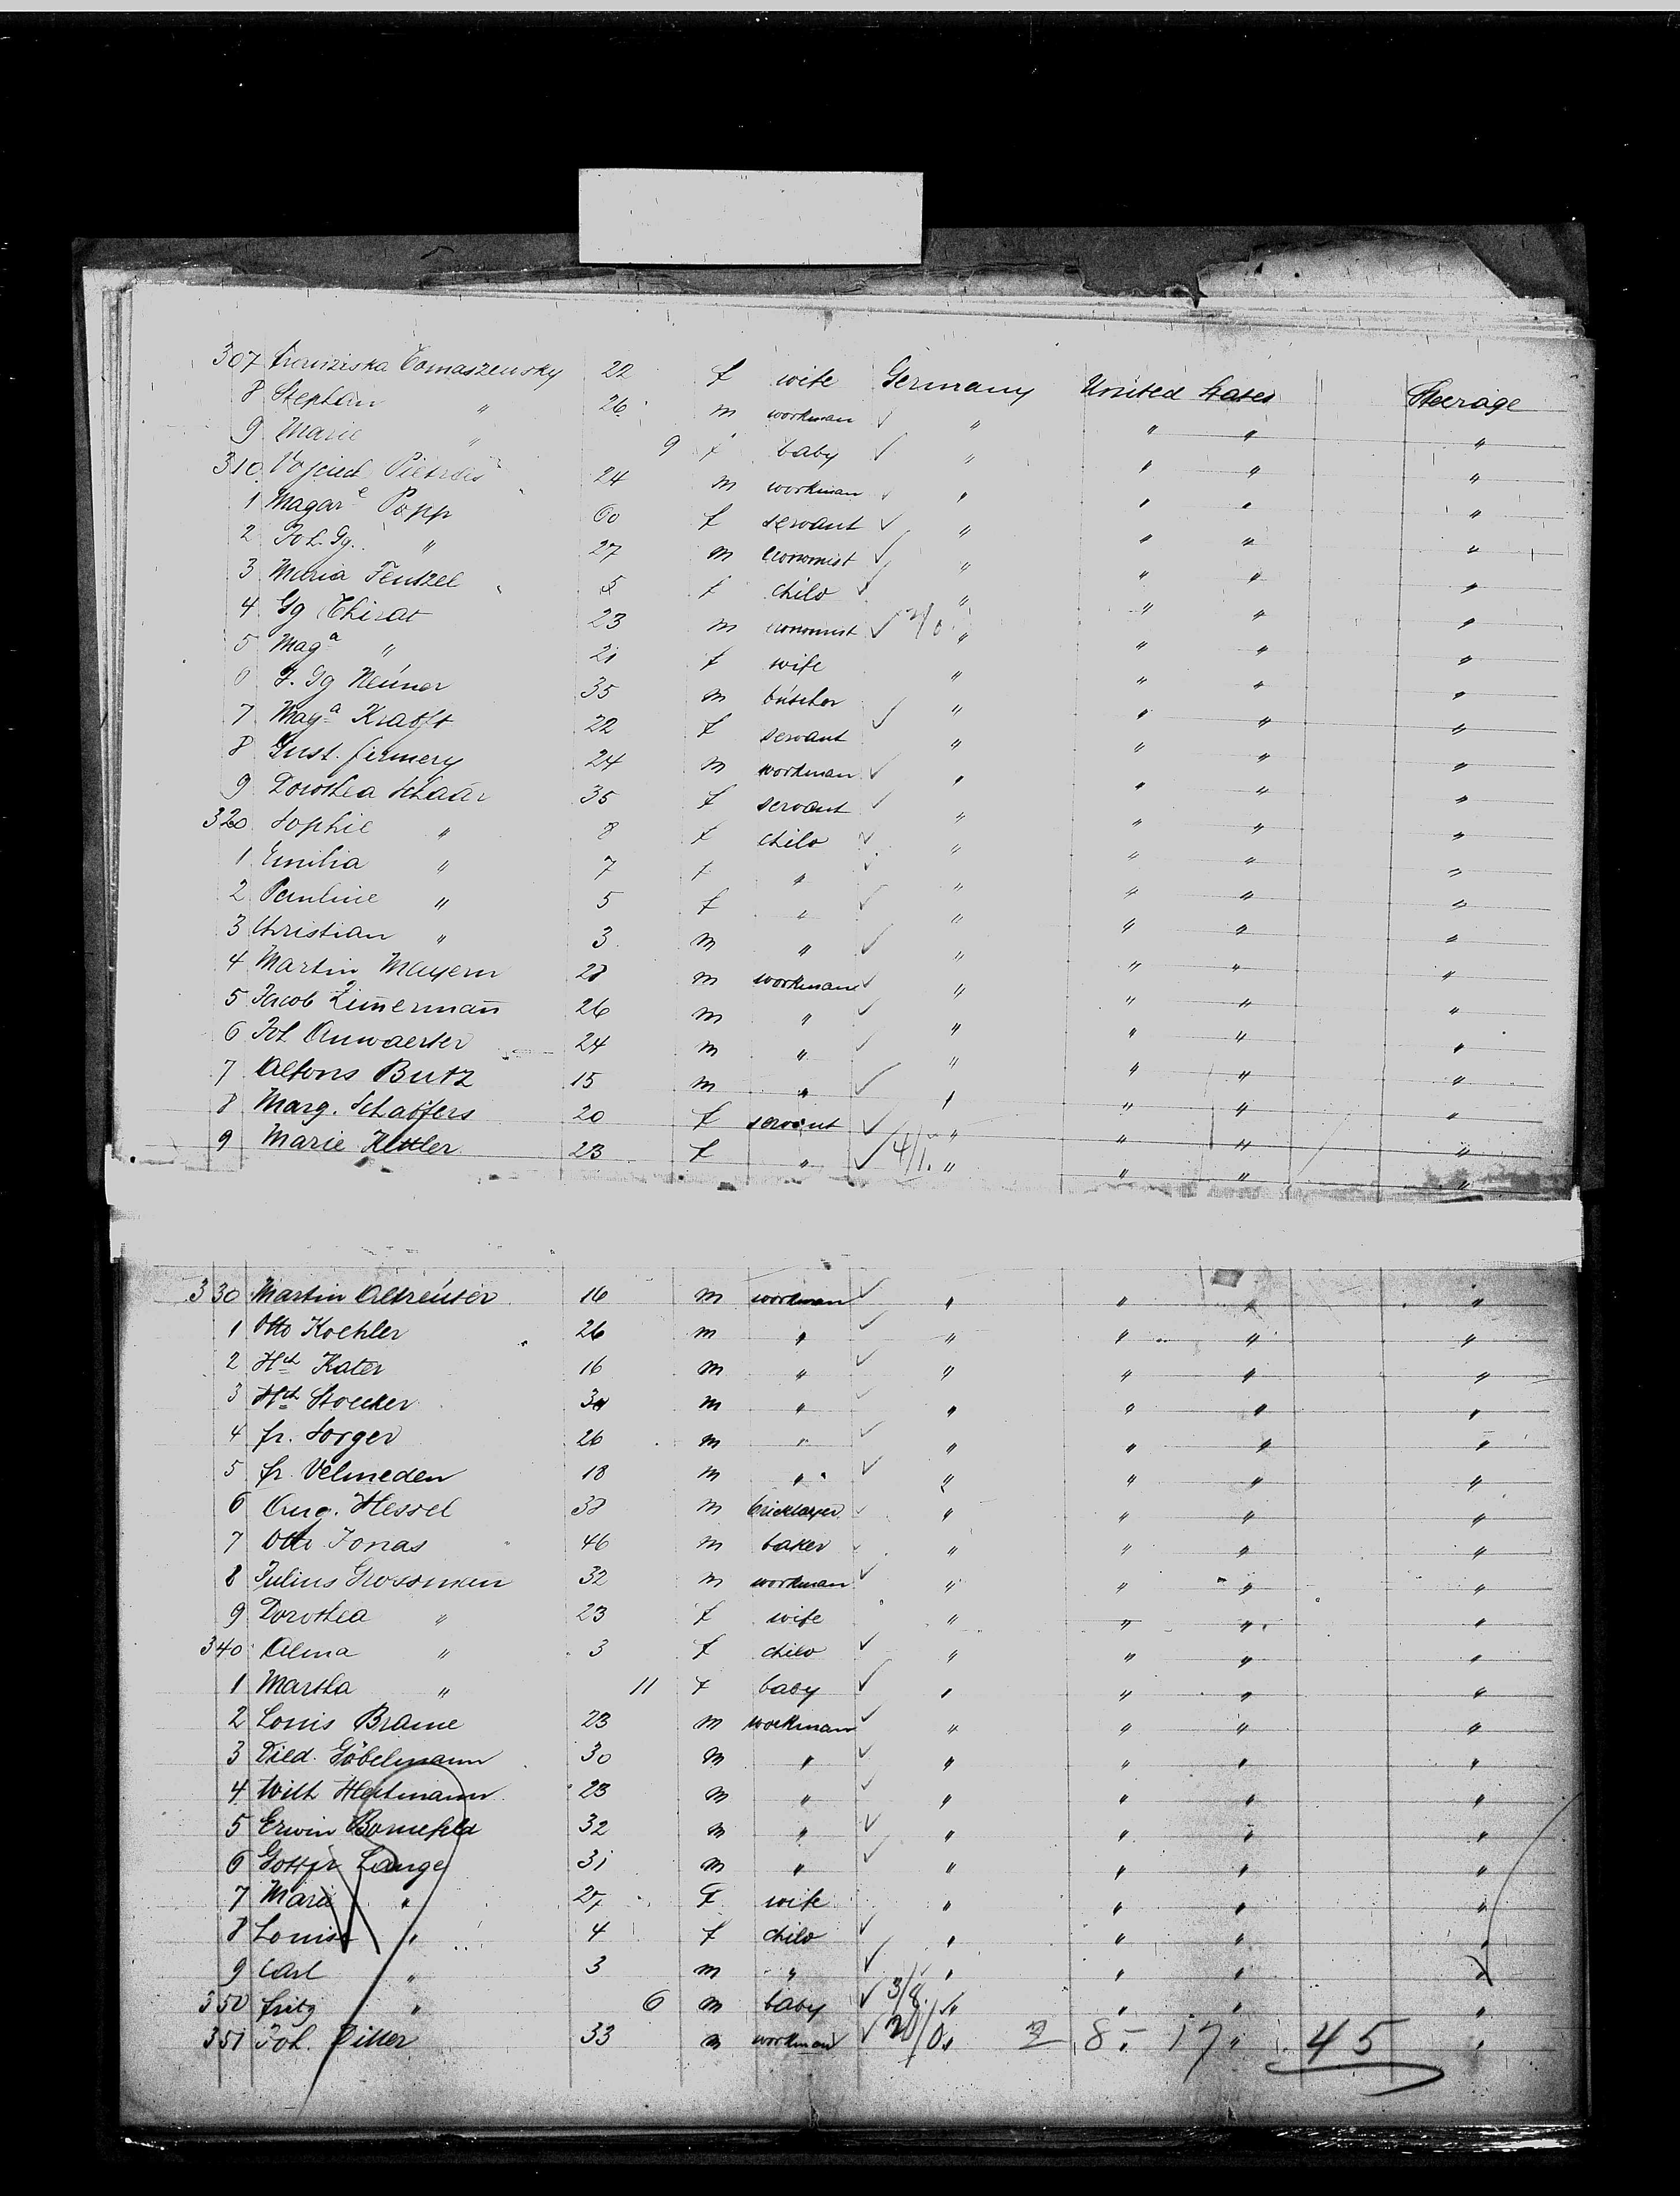 307 Franziska Tomaszewsky 22 f wife Germany United States Steerage
8 Stephan " 26 m workman ✓ " " " "
9 Marie " 9 f baby ✓ " " " "
310 24 m workman ✓ " " " "
1 Magar e Popp 60 f servant ✓ " " " "
2 Joh. Gg. " 27 m economist ✓ " " " "
3 Maria Fentzel 5 f child ✓ " " " "
4 Gg 23 m economist ✓ " " " "
5 Mag a " 21 f wife " " " "
6 J. Gg Neuner 35 m butcher " " " "
7 Mag a Krafft 22 f servant ✓ " " " "
8 Gust. 24 m workman ✓ " " " "
9 Dorothea Schaar 35 f servant ✓ " " " "
320 Sophie " 8 f child ✓ " " " "
1 Emilia " 7 f " ✓ " " " "
2 Pauline " 5 f " ✓ " " " "
3 Christian " 3 m " ✓ " " " "
4 Martin Mayern 28 m workman ✓ " " " "
5 Jacob Zim̄erman̄ 26 m " ✓ " " " "
6 Joh Anwaerter 24 m " ✓ " " " "
7 Alfons Butz 15 m " ✓ " " " "
8 Marg. Schaffers 20 f servant ✓ " " " "
9 Marie Kettler 23 f " ✓ 4/1. " " " "
330 Martin Altreuter 16 m workman ✓ " " " "
1 Otto Koehler 26 m " ✓ " " " "
2 Hch Kater 16 m " ✓ " " " "
3 Hch Stoecker m " ✓ " " " "
4 fr. Sorger 26 m " ✓ " " " "
5 fr. Velmeden 18 m " ✓ " " " "
6 Aug. Hessel 38 m bricklayer ✓ " " " "
7 Otto Jonas 46 m baker ✓ " " " "
8 Julius Grossman 32 m workman ✓ " " " "
9 Dorothea " 23 f wife " " " "
340 Alma " 3 f child ✓ " " " "
1 Martha " 11 f baby ✓ " " " "
2 Louis Brame 23 m workman ✓ " " " "
3 Died. Göbelmann 30 m " ✓ " " " "
4 Wilh Heitmann 23 m " ✓ " " " "
5 Erwin Bornefeld 32 m " ✓ " " " "
6 Gottfr Lange 31 m " ✓ " " " "
7 Marie " 27 f wife " " " "
8 Louise " 4 f child ✓ " " " "
9 Carl " 3 m " ✓ " " " "
350 fritz " 6 m baby ✓ 3/8. " " " "
351 Joh. Ditter 33 m workman ✓ 20/0 " 2 8 - 17 " 45 "